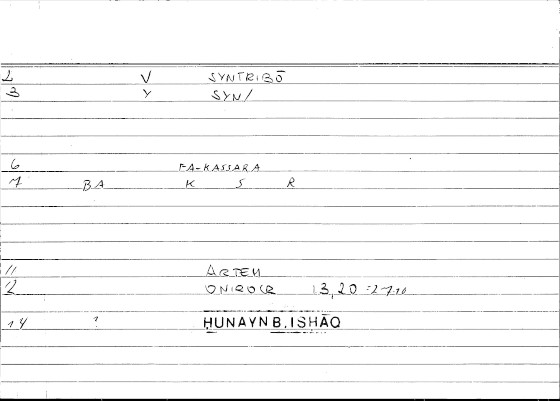 2 V SYNTRIBŌ
3 Y SYN/
6 FA-KASSARA
7 BA K S R
11 ARTEM
12 ONIROCR 13,20 = 27.10
14 ? HUNAYN B. ISHĀQ